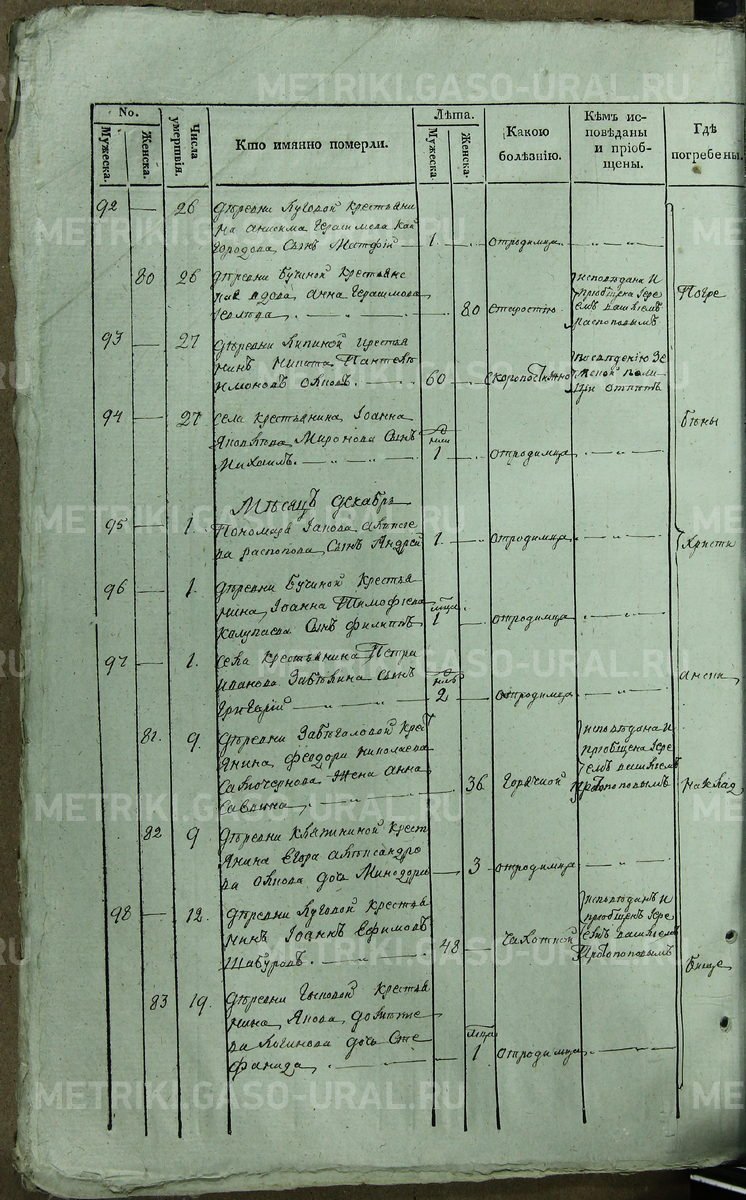 METRIKI.GASO-URAL.RU
No.
Мужеска.
Женска.
Числа умертвія.
Кто имянно померли.
Лѣта.
Мужеска.
Женска.
Какою болѣзнію.
Кѣмъ исповѣданы и пріобщены.
Гдѣ погребены.
92 — 26 деревни Луговой крестьяни
на Анисима Герасимова Кай
городова сынъ Матфій — 1 — отродимца
80 26 деревни Бучиной крестьянс
вдова Анна Герасимова
80 старостію
исповѣдана и
пріобщена Іере
емъ Василіемъ
Распоповымъ
Погре
93 — 27 деревни Липиной крестья
нинъ Никита Пантеле
имоновъ — 60 скоропостижно
94 — 27 села крестьянина Іоанна
Яковлева Миронова сынъ
Михаилъ — 1 — отродимца
бены
Мѣсяцъ декабрь
95 — 1. Пономаря Іакова Алексіе
ва Распопова сынъ Андрей 1 — отродимца
Христі
96 — 1. деревни Бучиной крестья
нина Іоанна Тимофеева
Калупаева сынъ Филиппъ 1 — отродимца
97 — 1. села крестьянина Петра
Иванова сынъ
Григорій 2 — отродимца
ански
81. 9. деревни крест
янина Феодора Николаева
жена Анна
Саввина 36 горячкой
исповѣдана и
пріобщена Іере
емъ Василіемъ
Протопоповымъ
на клад
82 9 деревни крест
янина Егора Александро
ва дочь Минодора — 3 отродимца
98 — 12. деревни Луговой крестья
нинъ Іоаннъ Ефимовъ
Шабуровъ. — 48 — чахоткой
исповѣданъ и
пріобщенъ Іере
емъ Василіемъ
Протопоповымъ
бище
83 19. деревни крестья
нина Якова
дочь Сте
фанида — 1 отродимца